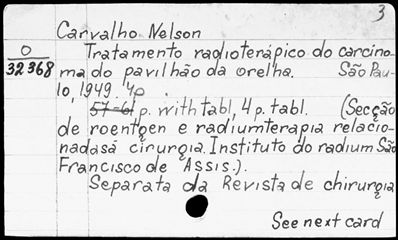 3
Carvalho Nelson
O Tratamento radioterápico do carcino-
32368 ma do pavilhão da orelha. São Pau-
lo, 1949. 40
57-61 p. with tabl, 4 p. tabl. (Secção
de roentgen e radiumterapia relacio-
nadasá cirurgia. Instituto do radium São
Francisco de Assis.).
Separata da Revista de chirurgia
See next card